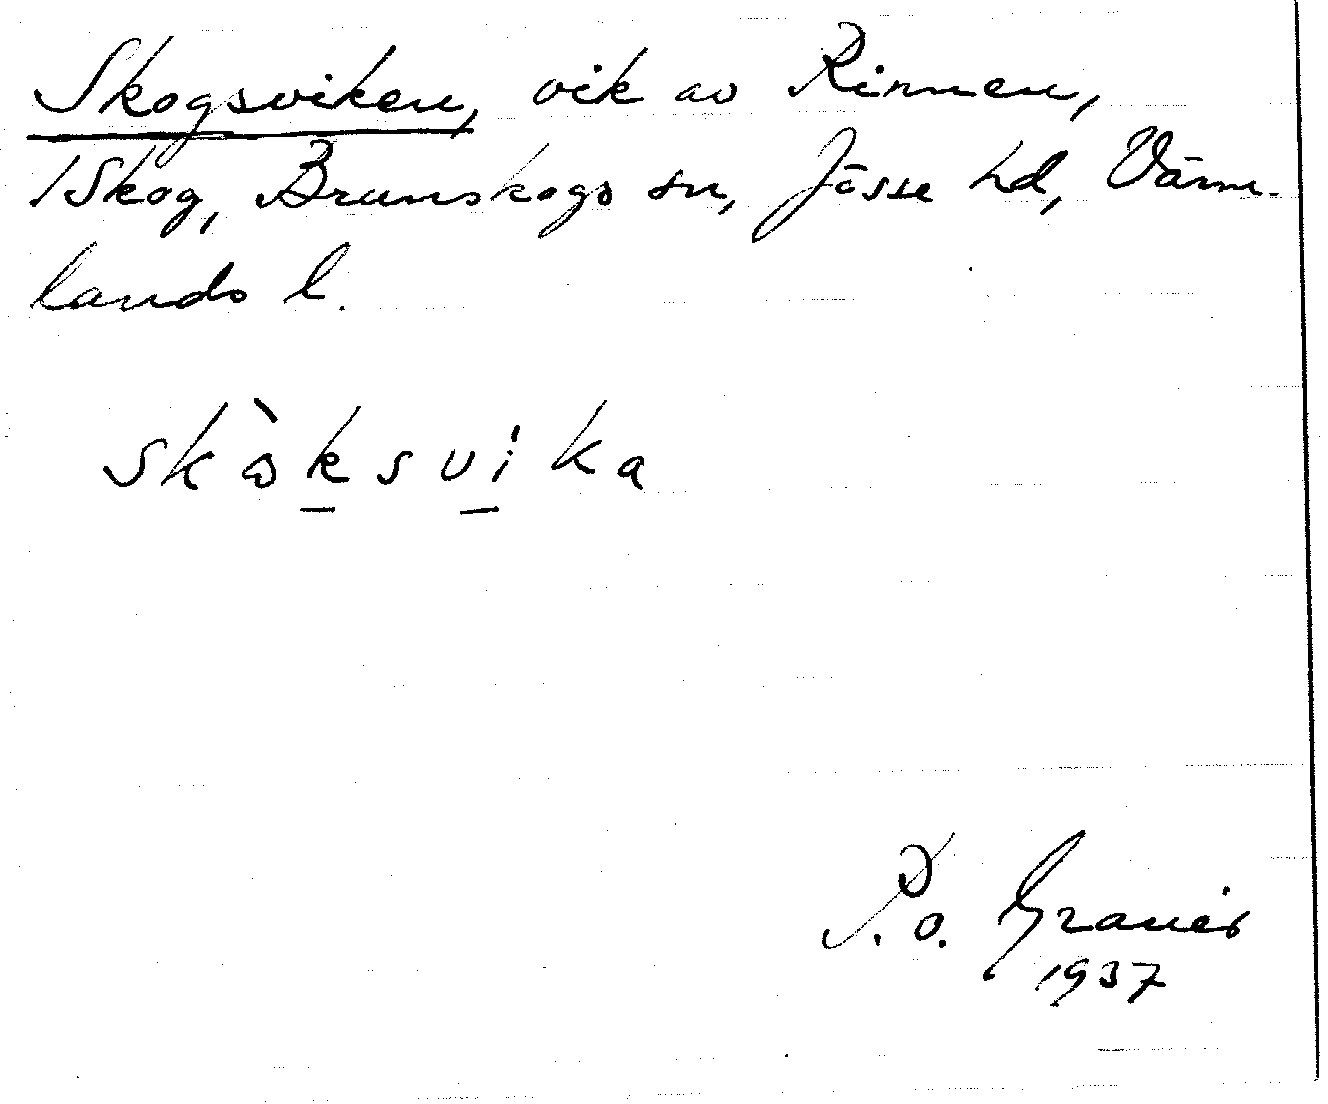 Skogsviken, vik av Rinnen,
1 Skog, Brunskogs sn, Jösse hd, Värm-
lands l.
skòksvika
P. o. Granér
1937